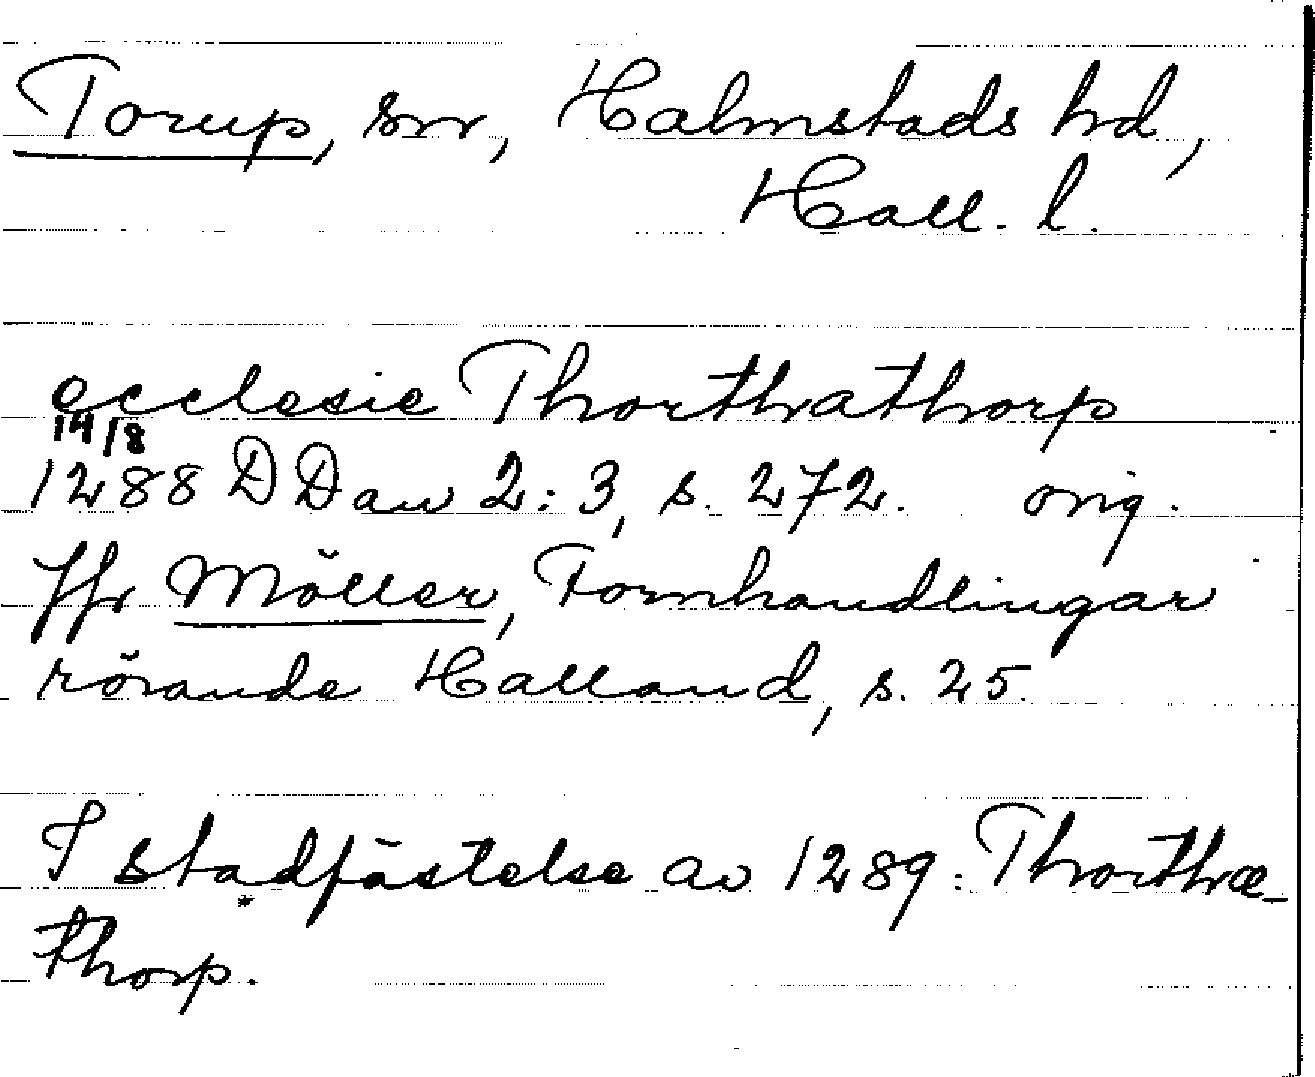 Torup, sn, Halmstads hd,
Hall. l.
ecclesie Thorthathorp
14/8
1288 DDan 2:3, s. 272. orig.
Jfr Möller, Fornhandlingar
rörande Halland, s. 25.
I stadfästelse av 1289: Thorthæ-
thorp.